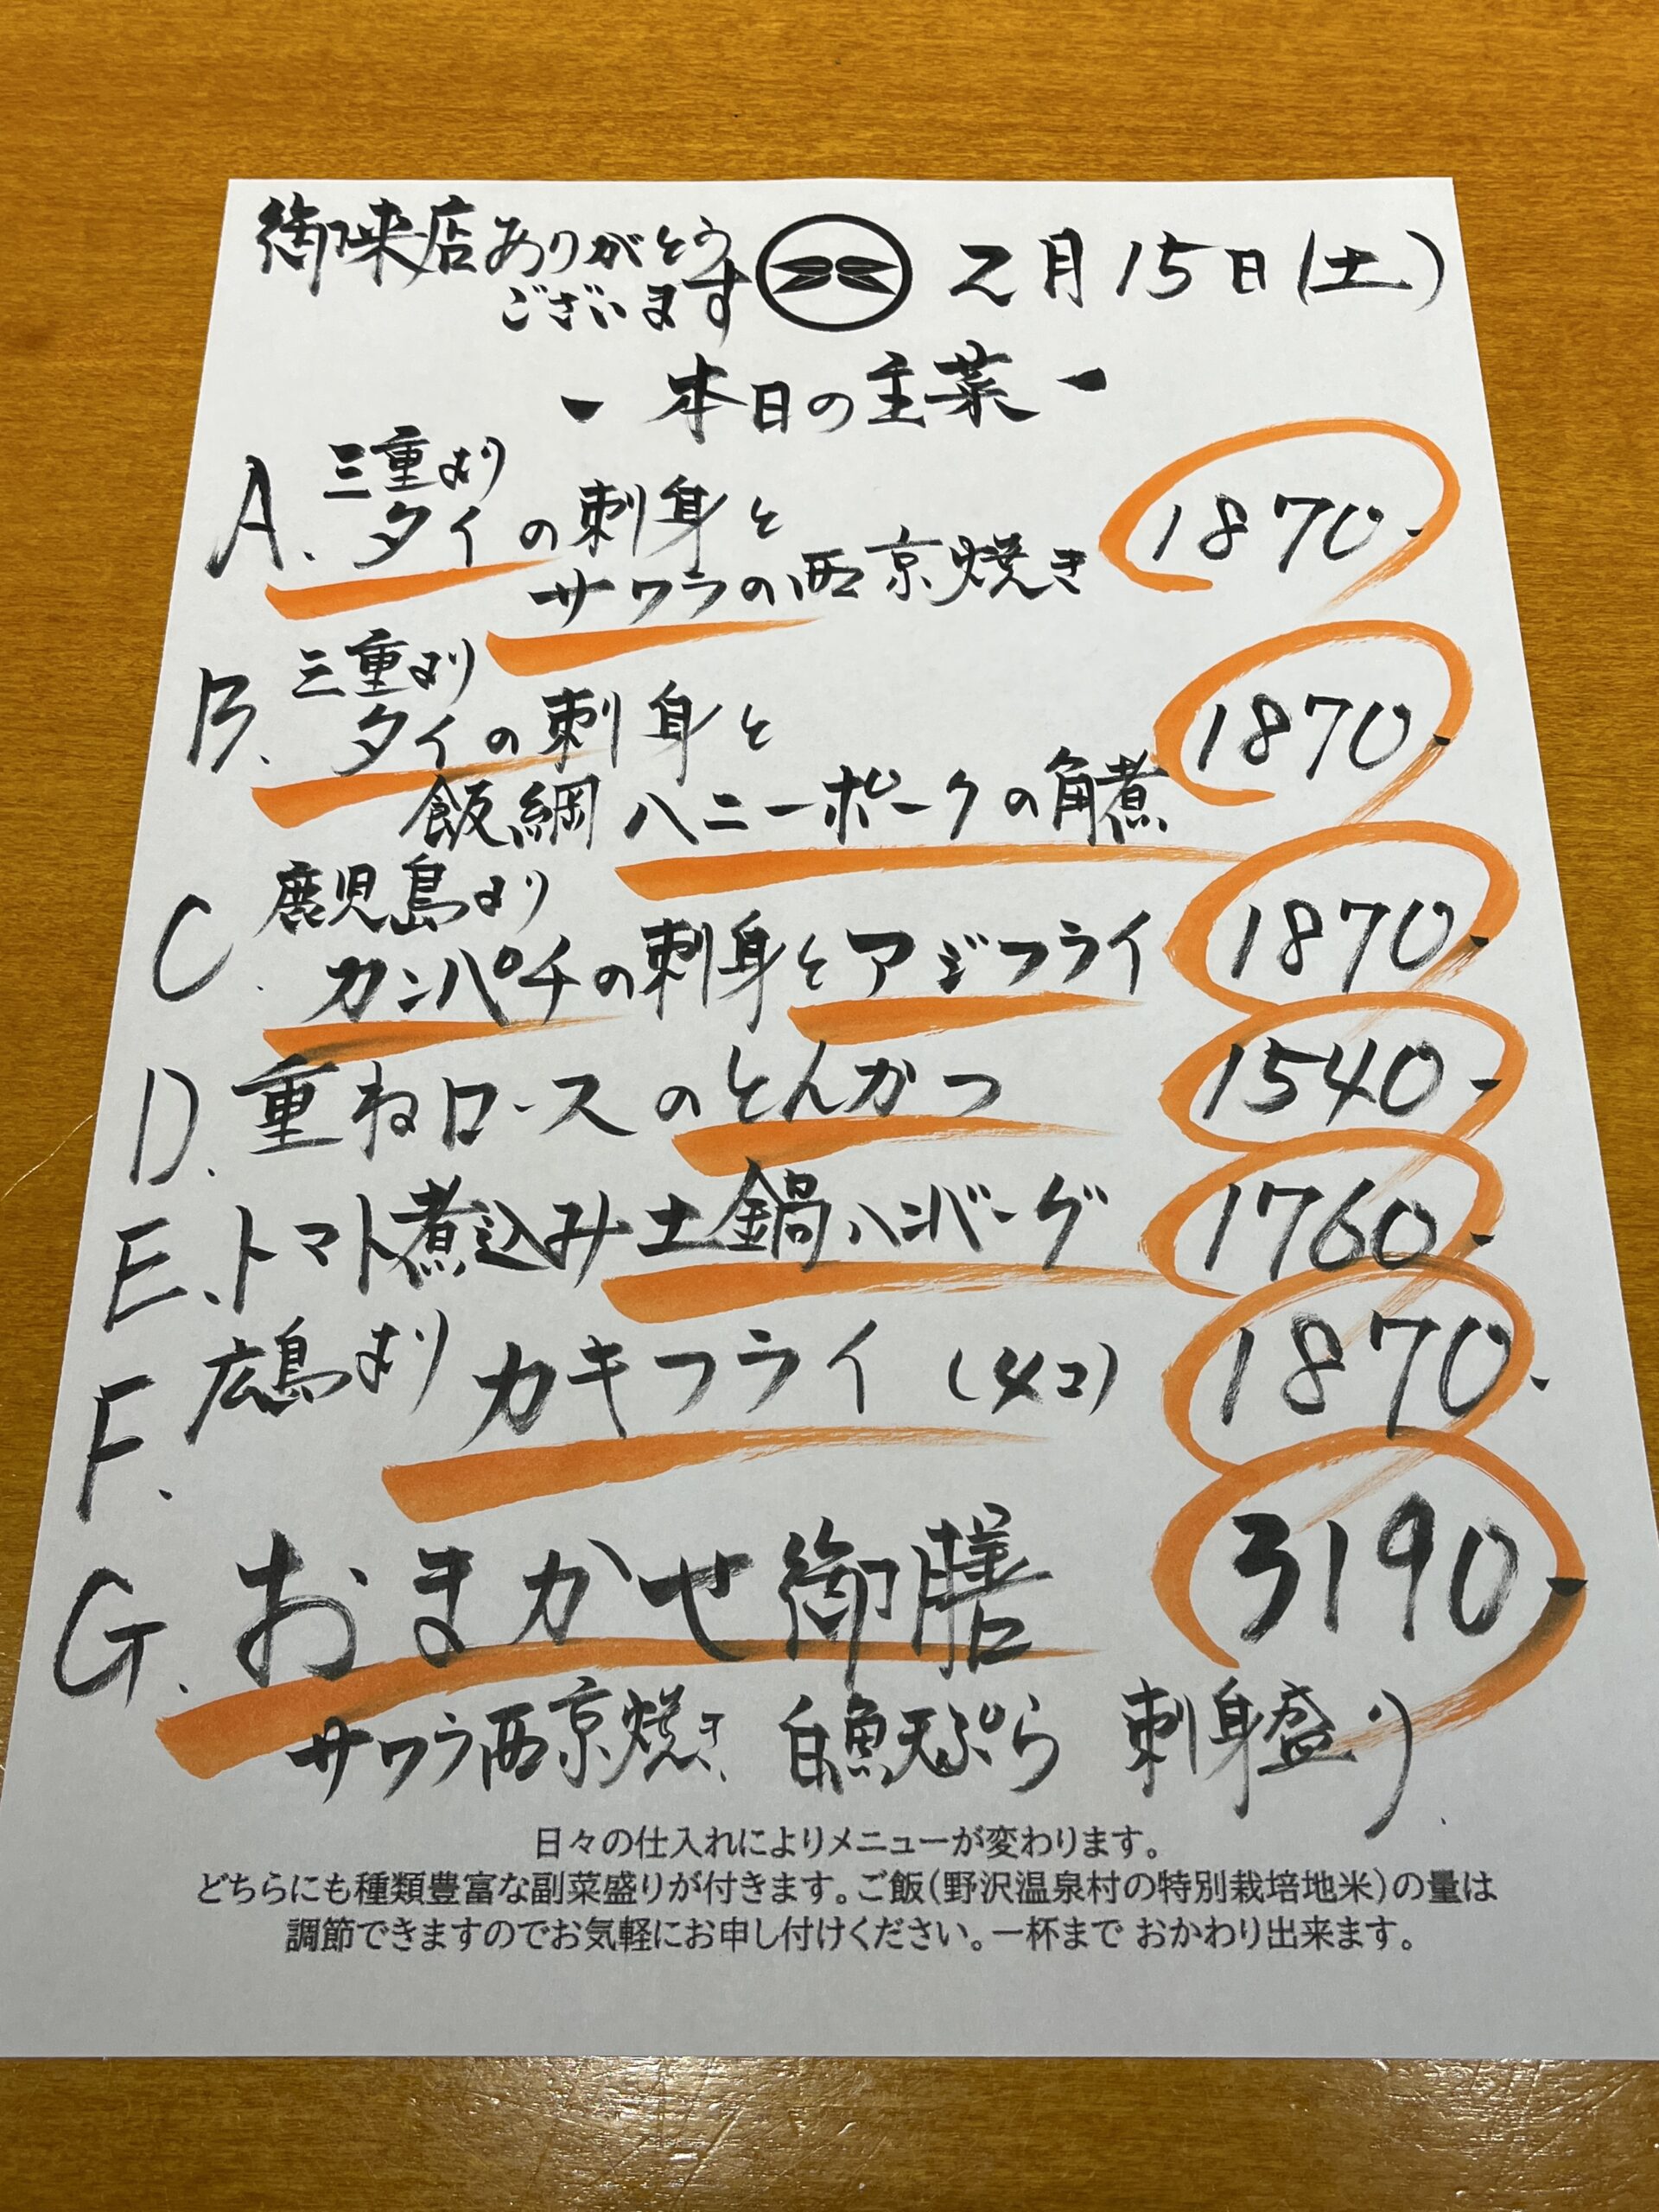 御来店ありがとう
ございます
2月15日(土)
- 本日の主菜 -
三重より
A. タイの刺身と
サワラの西京焼き
1870.-
三重より
B. タイの刺身と
飯綱ハニーポークの角煮
1870.-
鹿児島より
C. カンパチの刺身とアジフライ 1870.-
D. 重ねロースのとんかつ 1540.-
E. トマト煮込み土鍋ハンバーグ 1760.-
広島より
F. カキフライ (4コ) 1870.-
G. おまかせ御膳 3190.-
サワラ西京焼き 白魚天ぷら 刺身盛り
日々の仕入れによりメニューが変わります。
どちらにも種類豊富な副菜盛りが付きます。ご飯(野沢温泉村の特別栽培地米)の量は
調節できますのでお気軽にお申し付けください。一杯まで おかわり出来ます。